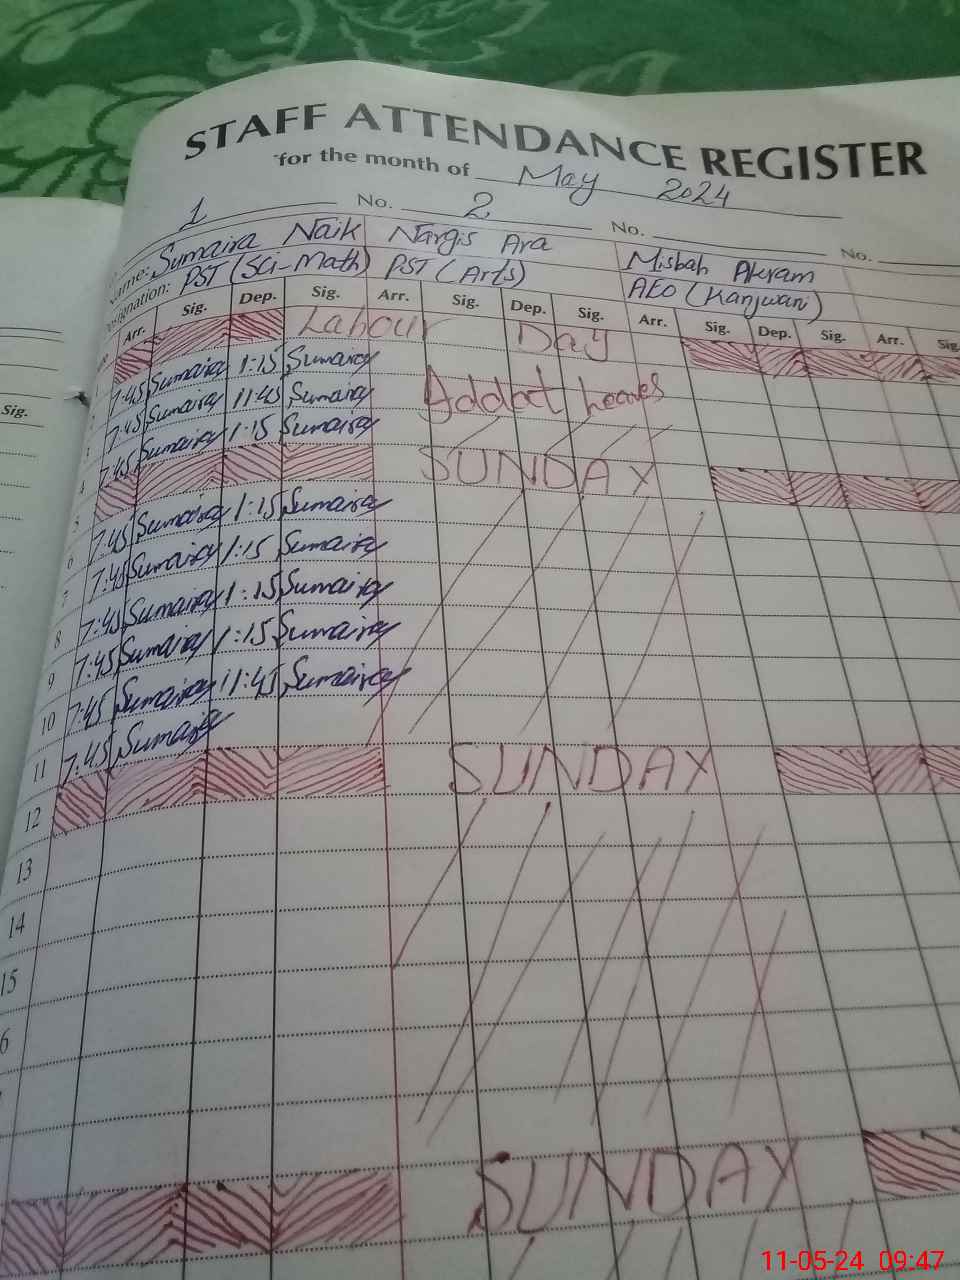 STAFF ATTENDANCE REGISTER
for the month of May 2024
1 No. 2 No. No.
Name: Sumaira Naik Nargis Ara Misbah Akram
Designation: PST (Sci-Math) PST (Arts) AEO (Kanjwari)
Arr. Sig. Dep. Sig. Arr. Sig. Dep. Sig. Arr. Sig. Dep. Sig. Arr. Sig.
Labour Day
7:45 Sumaira 1:15 Sumaira
7:45 Sumaira 11:45 Sumaira Addat Leaves
7:45 Sumaira 1:15 Sumaira
SUNDAY
7:45 Sumaira 1:15 Sumaira
6 7:45 Sumaira 1:15 Sumaira
7 7:45 Sumaira 1:15 Sumaira
8 7:45 Sumaira 1:15 Sumaira
9 7:45 Sumaira 11:45 Sumaira
10 7:45 Sumaira
11 SUNDAY
12
13
14
15
6
SUNDAY
Sig.
11-05-24 09:47